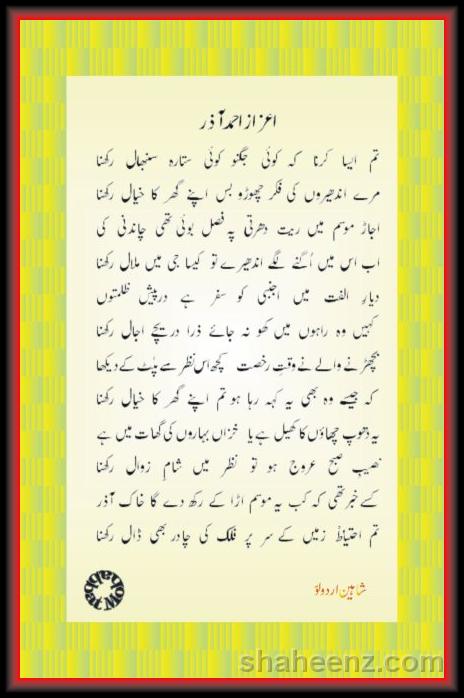 اعزاز احمد آذر
تم ایسا کرنا کہ کوئی جگنو کوئی ستارہ سنبھال رکھنا
مرے اندھیروں کی فکر چھوڑو بس اپنے گھر کا خیال رکھنا
اجاڑ موسم میں ریت دھرتی پہ فصل بوئی تھی چاندنی کی
اب اس میں اُگنے لگے اندھیرے تو کیسا جی میں ملال رکھنا
دیارِ الفت میں اجنبی کو سفر ہے درپیش ظلمتوں
کہیں وہ راہوں میں کھو نہ جائے ذرا دریچے اجال رکھنا
بچھڑنے والے نے وقتِ رخصت کچھ اس نظر سے پلٹ کے دیکھا
کہ جیسے وہ بھی یہ کہہ رہا ہو تم اپنے گھر کا خیال رکھنا
یہ دھوپ چھاؤں کا کھیل ہے یا خزاں بہاروں کی گھات میں ہے
نصیبِ صبح عروج ہو تو نظر میں شامِ زوال رکھنا
کسے خبر تھی کہ کب یہ موسم اڑا کے رکھ دے گا خاک آذر
تم احتیاطً زمیں کے سر پر فلک کی چادر بھی ڈال رکھنا
شاہین اردو لوّ
shaheenz.com